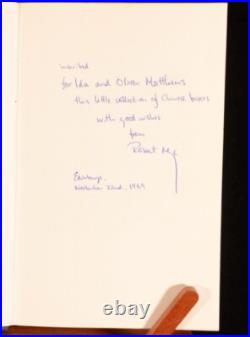 inscribed
for Ida and Oliver Matthews
this little collection of Chinese
with good wishes
from
Robert
November 22nd, 1969
thebookjewels.com